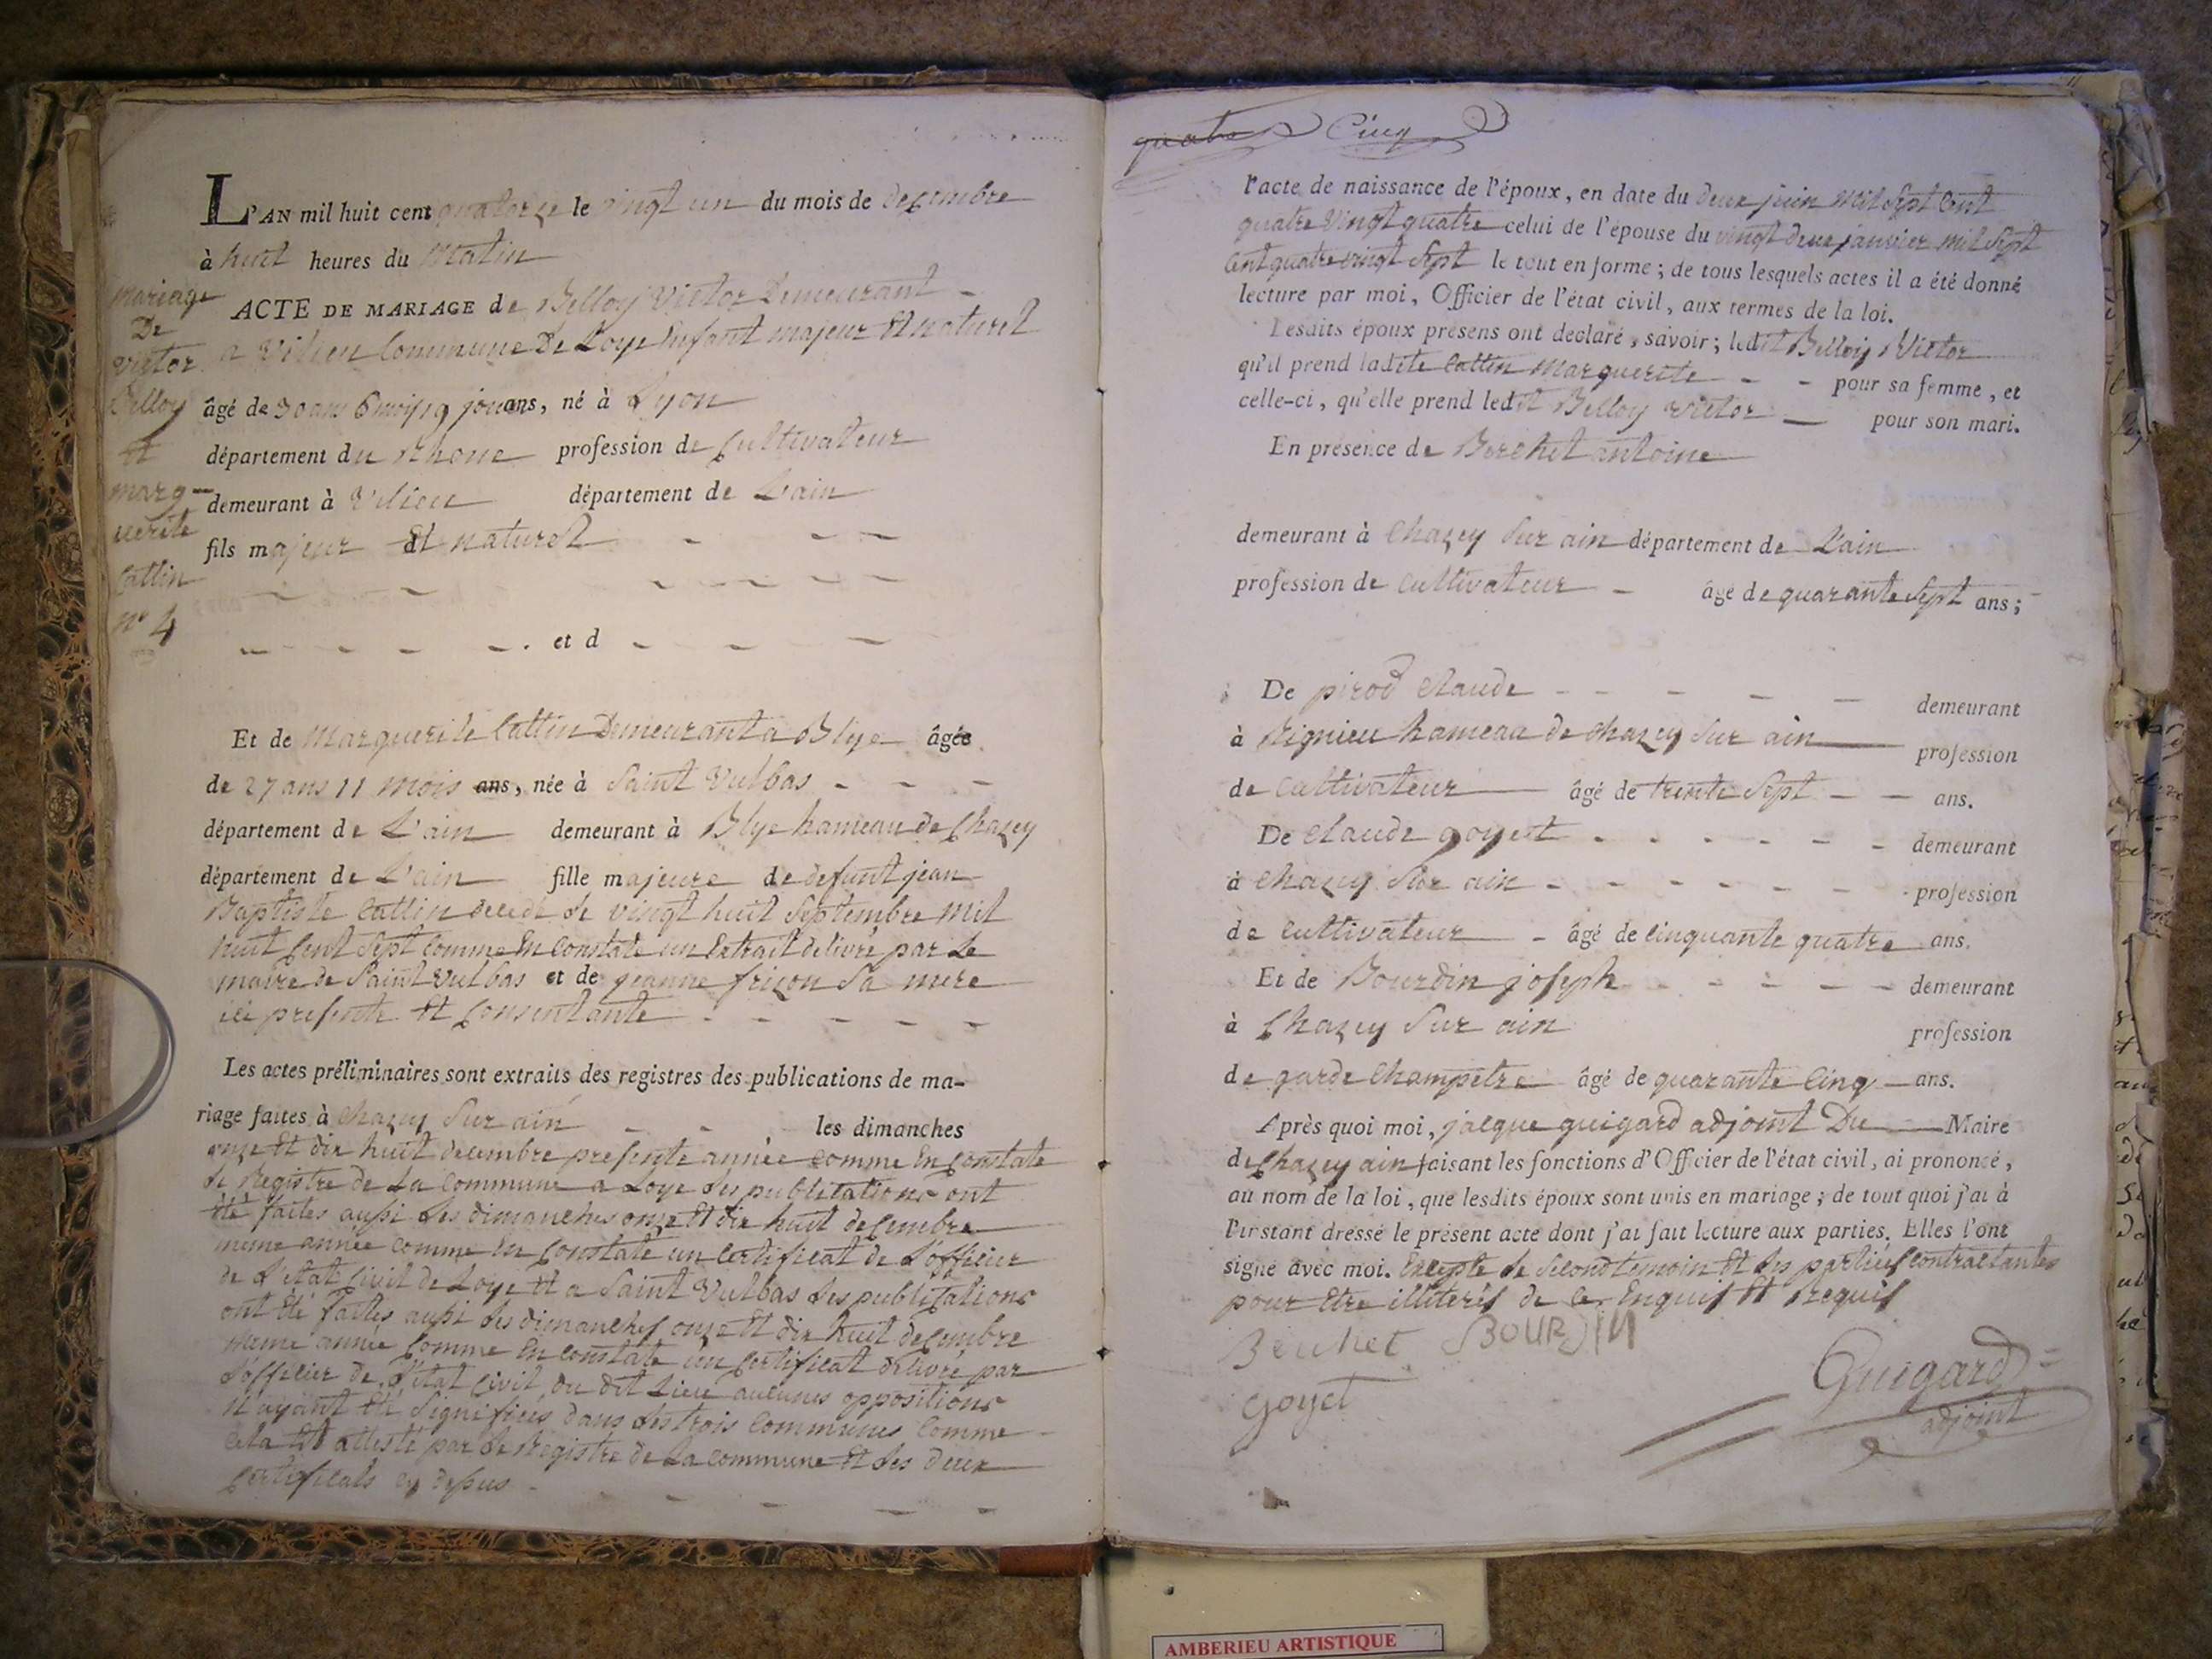 L'AN mil huit cent quatorze le vingt un du mois de decembre
à huit heures du Matin
mariage
De
victor
Belloy
et
marg-
uerite
Cattin
n° 4
ACTE DE MARIAGE de Belloy Victor Demeurant
a Vilieu Commune De Loye Enfant majeur Et naturel
âgé de 30 ans 6 mois 19 jours ans, né à Lyon
département du Rhone profession de Cultivateur
demeurant à Vilieu département de L'ain
fils majeur Et naturel
et d
Et de Marguerite Cattin Demeurant a Blye âgée
de 27 ans 11 mois ans, née à Saint Vulbas
département de L'ain demeurant à Blye hameau de Chazey
département de L'ain fille majeure de defunt jean
Baptiste Cattin decedé le vingt huit Septembre mil
huit Cent Sept Comme En Constate un Extrait delivré par Le
maire de Saint Vulbas et de jeanne friçon Sa mere
ici presente Et Consentante
Les actes préliminaires sont extraits des registres des publications de ma-
riage faites à Chazey Sur ain les dimanches
onze Et dix huit decembre presente année comme En Constate
Le Registre de La Commune a Loye Les publications ont
été faites aussi Les dimanches onze Et dix huit decembre
meme année Comme En Constate un Certificat de L'officier
de L'état Civil de Loye Et a Saint Vulbas Les publications
ont été faites aussi Les dimanches onze Et dix huit decembre
meme année Comme En constate un Certificat delivré par
L'officier de L'état Civil du dit Lieu aucunes oppositions
N'ayant été Signifiées dans Les trois Communes Comme
Cela Est attesté par Le Registre de La commune Et Les deux
Certificats cy dessus
quatre Cinq
l'acte de naissance de l'époux, en date du deux juin Mil Sept Cent
quatre Vingt quatre celui de l'épouse du vingt deux janvier mil Sept
Cent quatre vingt Sept le tout en forme ; de tous lesquels actes il a été donné
lecture par moi, Officier de l'état civil, aux termes de la loi.
Lesdits époux présens ont déclaré, savoir ; ledit Belloy Victor
qu'il prend ladite Cattin Marguerite pour sa femme, et
celle-ci, qu'elle prend ledit Belloy Victor pour son mari.
En présence de Berchet antoine
demeurant à Chazey Sur ain département de L'ain
profession de Cultivateur âgé de quarante Sept ans ;
De pirod Claude demeurant
à Rignieu hameau de Chazey Sur ain profession
de Cultivateur âgé de trente Sept ans.
De Claude goyet demeurant
à Chazey Sur ain profession
de Cultivateur âgé de cinquante quatre ans.
Et de Bourdin joseph demeurant
à Chazey Sur ain profession
de garde Champetre âgé de quarante Cinq ans.
Après quoi moi, jacque guigard adjoint Du Maire
de Chazey ain faisant les fonctions d'Officier de l'état civil, ai prononcé,
au nom de la loi, que lesdits époux sont unis en mariage ; de tout quoi j'ai à
l'instant dressé le présent acte dont j'ai fait lecture aux parties. Elles l'ont
signé avec moi. Excepte Le Second temoin Et Les parties Contractantes
pour Etre illiterés de Ce Enquis Et Requis
Berchet BOURDIN
Goyet
Guigard
adjoint
AMBERIEU ARTISTIQUE